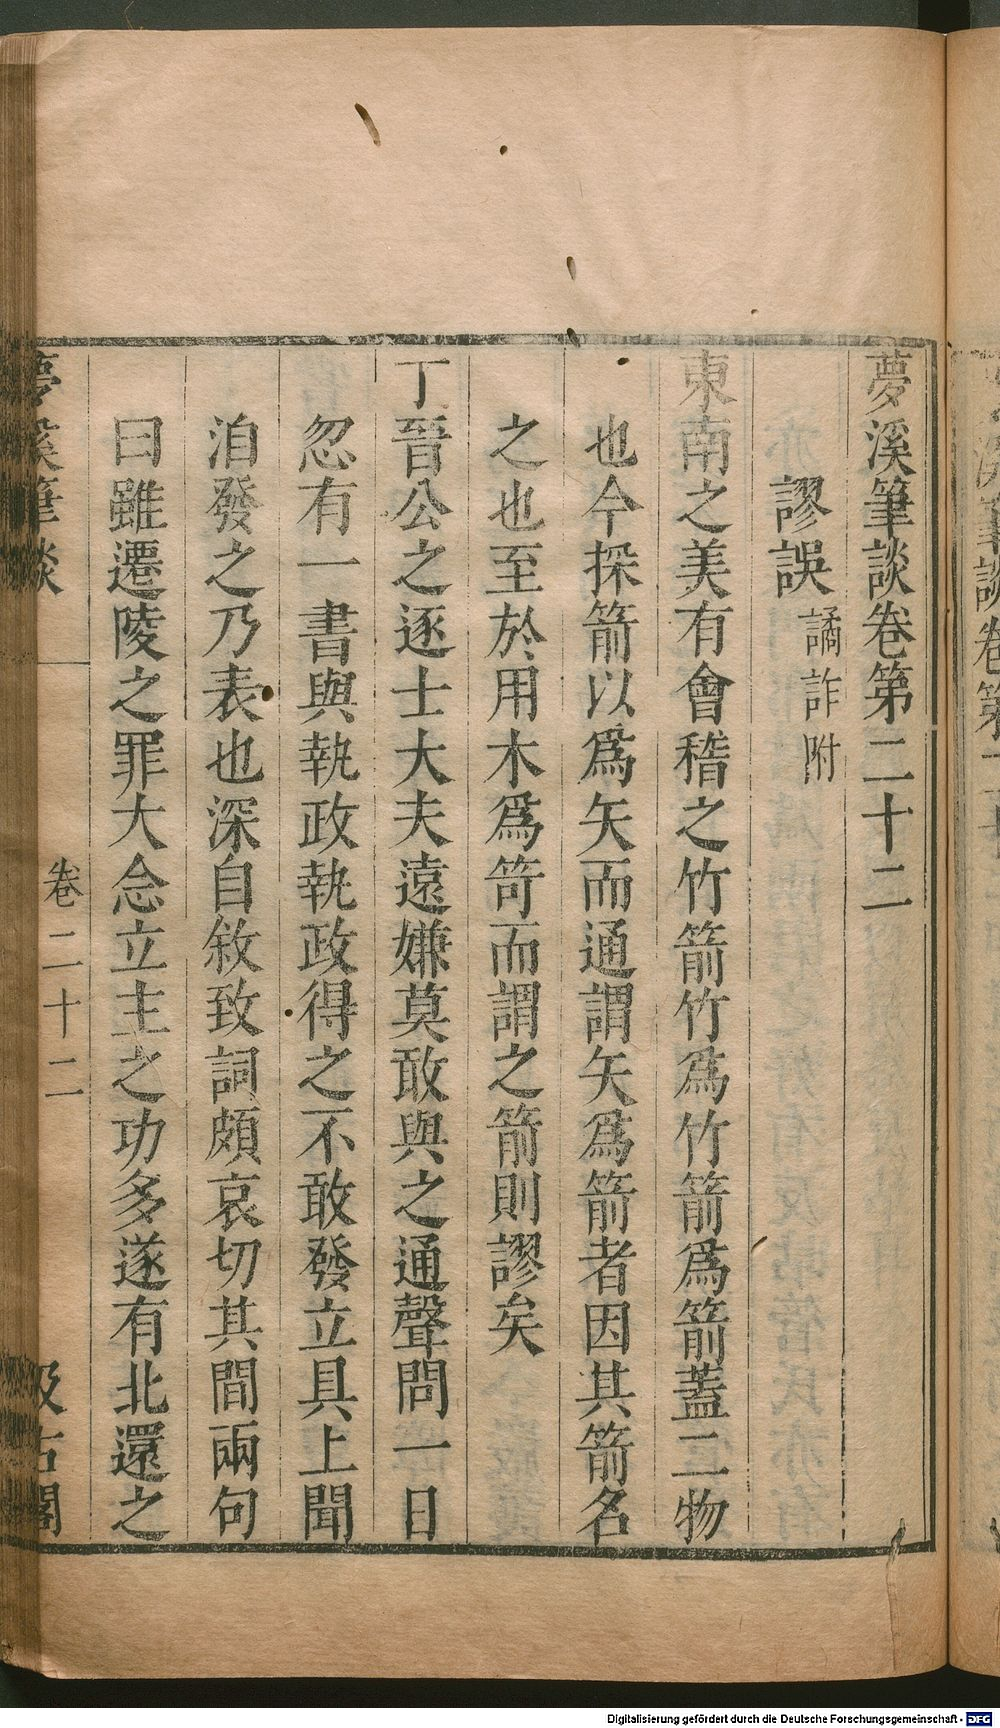 夢溪筆談卷第二十二
謬誤 譎詐附
東南之美有會稽之竹箭竹為竹箭為箭蓋二物
也今採箭以為矢而通謂矢為箭者因其箭名
之也至於用木為笴而謂之箭則謬矣
丁晉公之逐士大夫遠嫌莫敢與之通聲問一日
忽有一書與執政執政得之不敢發立具上聞
洎發之乃表也深自敘致詞頗哀切其間兩句
曰雖遷陵之罪大念立主之功多遂有北還之
夢溪筆談
卷二十二
汲古閣
Digitalisierung gefördert durch die Deutsche Forschungsgemeinschaft - DFG